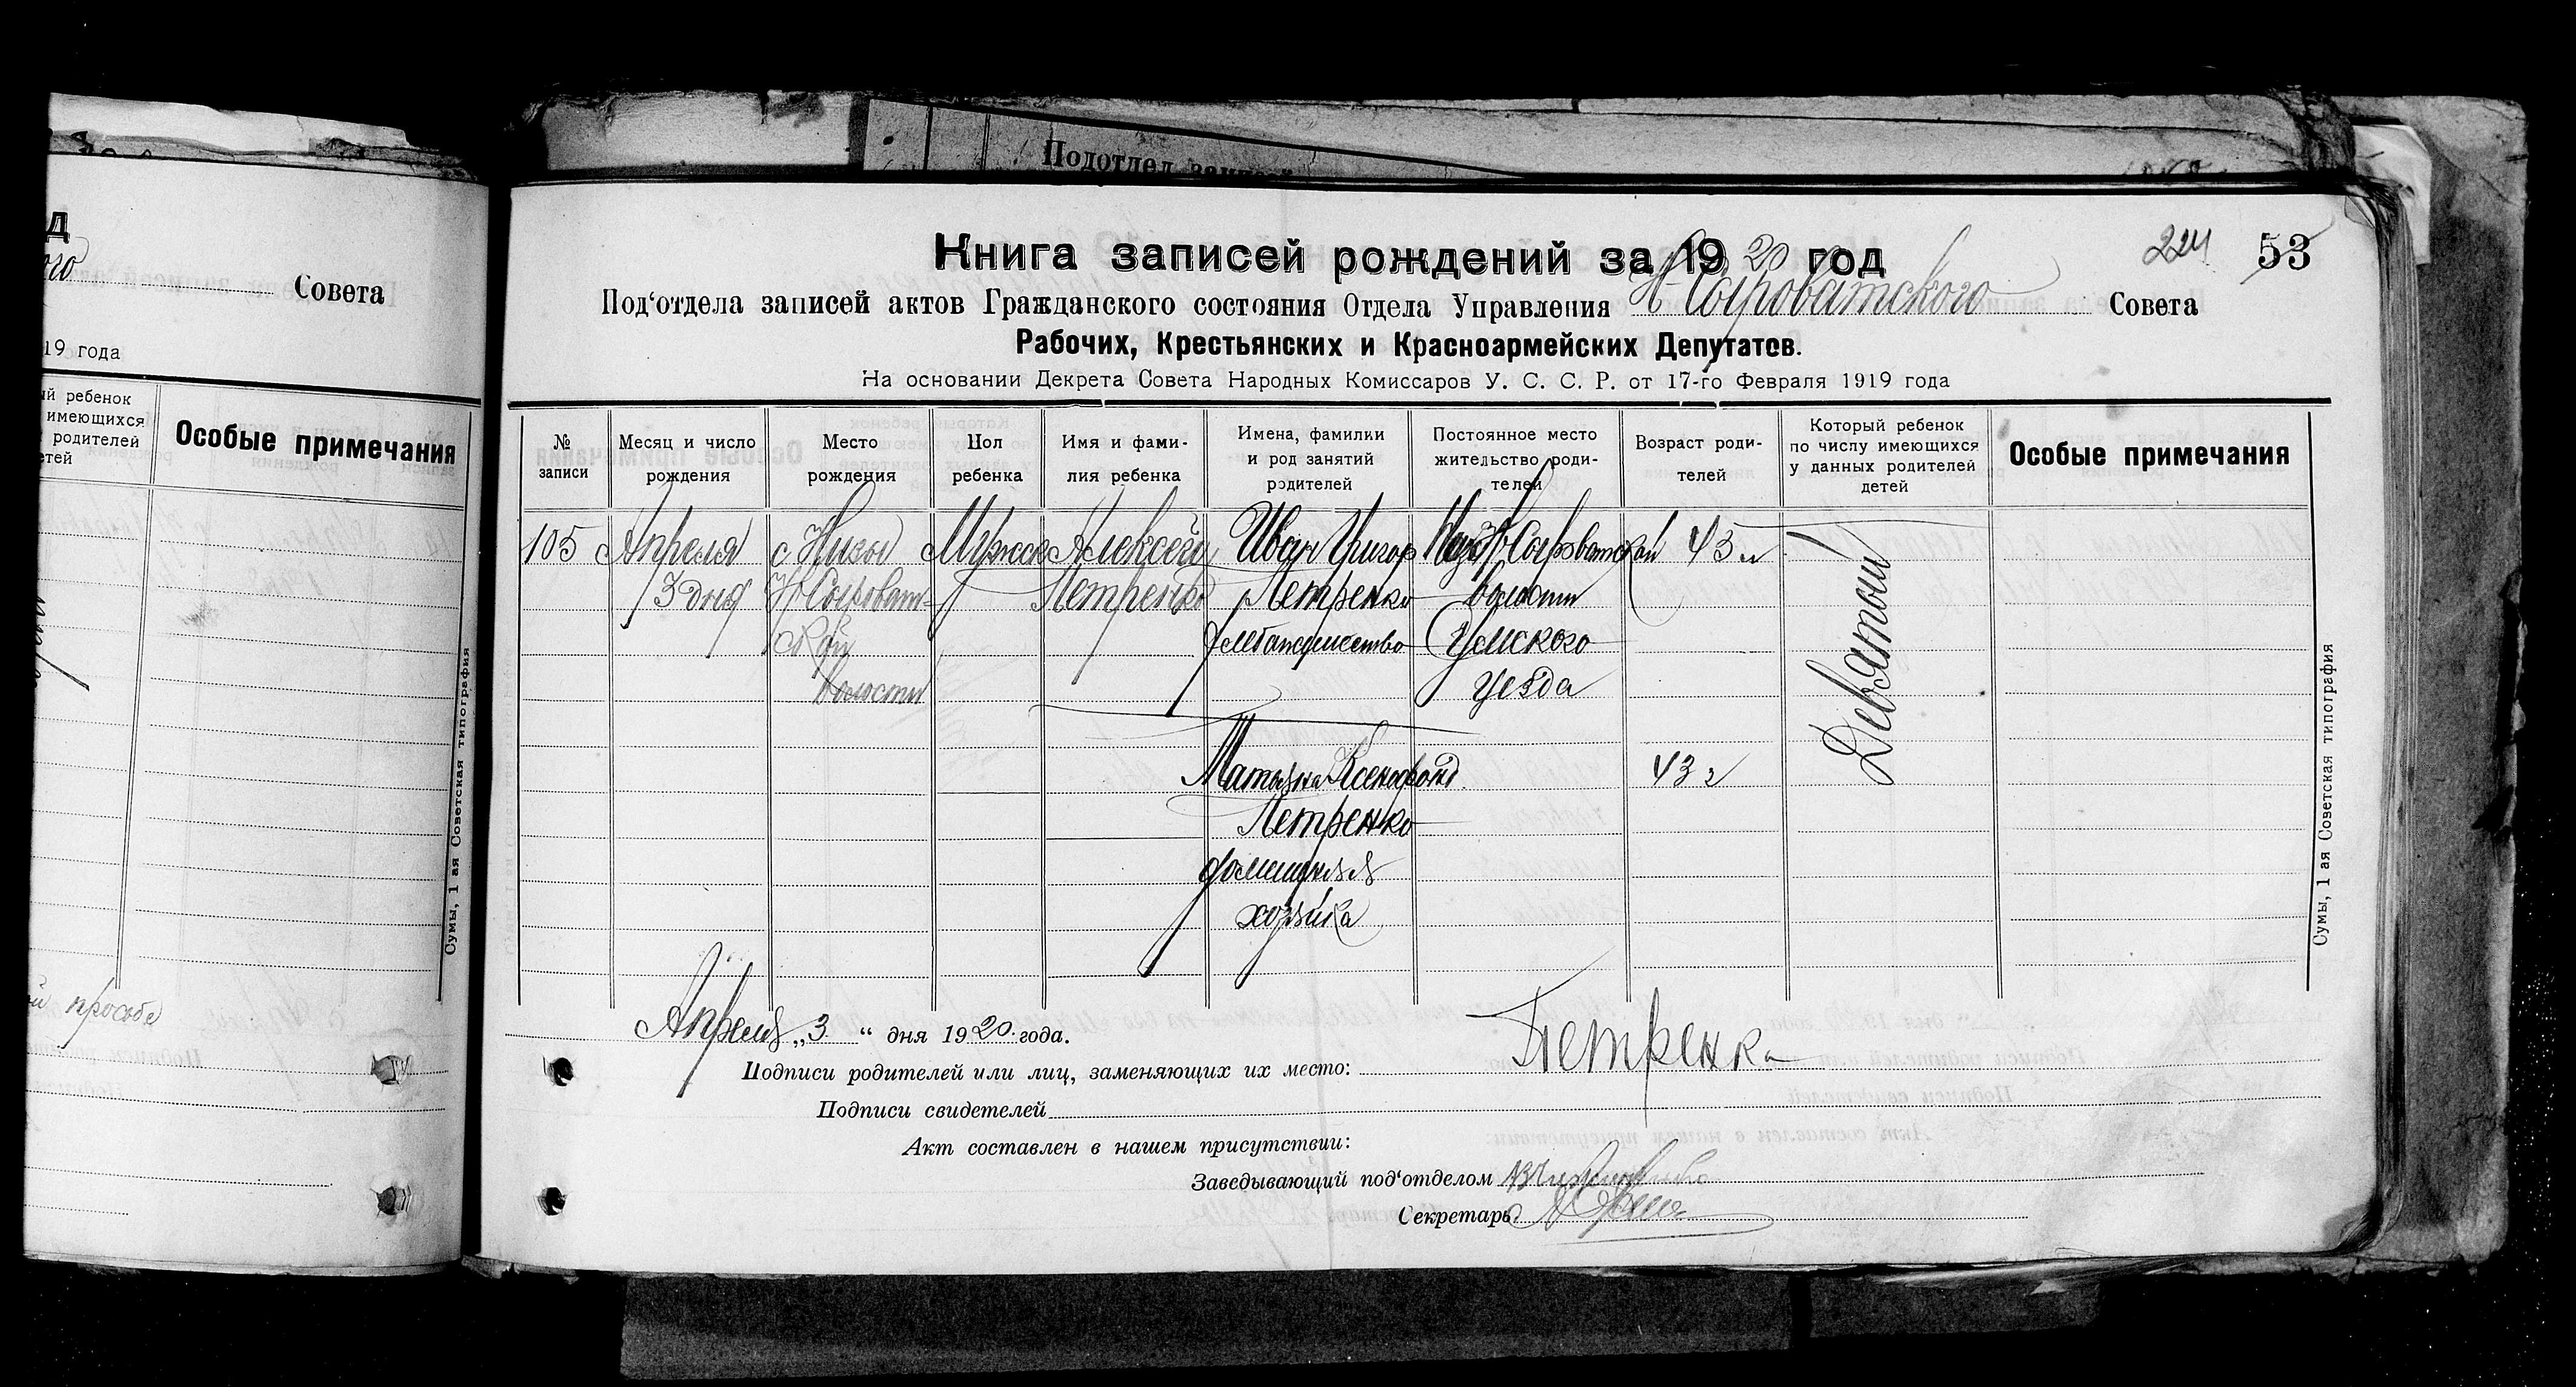 Подотдел
д
Совета
19 года
ый ребенок
имеющихся
родителей
етей
Особые примечания
Сумы, 1 ая Советская типография
Книга записей рождений за 1920 год
224 53
Под‘отдела записей актов Гражданского состояния Отдела Управления Н-Сыроватского Совета
Рабочих, Крестьянских и Красноармейских Депутатов.
На основании Декрета Совета Народных Комиссаров У. С. С. Р. от 17-го Февраля 1919 года
№ записи
Месяц и число рождения
Место рождения
Пол ребенка
Имя и фами-
лия ребенка
Имена, фамилки
и род занятий
родителей
Постоянное место
жительство роди-
телей
Возраст роди-
телей
Который ребенок
по числу имеющихся
у данных родителей
детей
Особые примечания
105 Апреля с Низы Мужск Алексей Иван Григор Н Сыроватской 43 л
3 дня Н Сыроват- Петренко Петренко волости
ской хлебопашество Сумского
волости уезда
Девятый
Матрена Ксенофонд. 43 г
Петренко
домашняя
хозяйка
Апреля „3“ дня 1920 года.
Подписи родителей или лиц, заменяющих их место: Петренка
Подписи свидетелей
Акт составлен в нашем присутствии:
Заведывающий под‘отделом
Секретарь
Сумы, 1 ая Советская типография